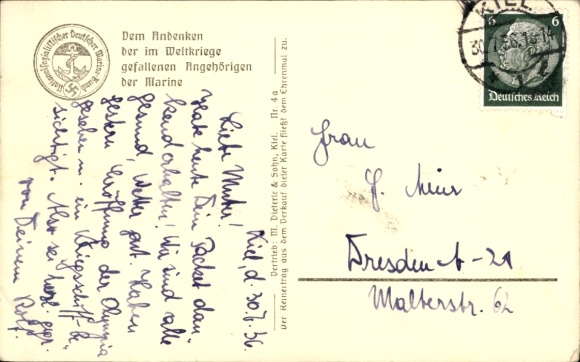 Nationalsozialistischer Deutscher Marine-Bund
Dem Andenken
der im Weltkriege
gefallenen Angehörigen
der Marine
Kiel, d. 30.7.36.
Liebe Mutter!
Habe heute Dein Packet dan-
kend erhalten! Wir sind alle
gesund, Wetter gut. Haben
gestern Eröffnung der Olympia
gesehen u. ein Kriegsschiff be-
sichtigt. Also sei herzl. gegr.
von Deinem
Vertrieb: M. Dieterle & Sohn, Kiel. Nr. 4a
Der Reinertrag aus dem Verkauf dieser Karte fließt dem Ehrenmal zu.
KIEL
30.7.36
6 6
Deutsches Reich
Frau
J. Meir
Dresden A-21
Malterstr. 62